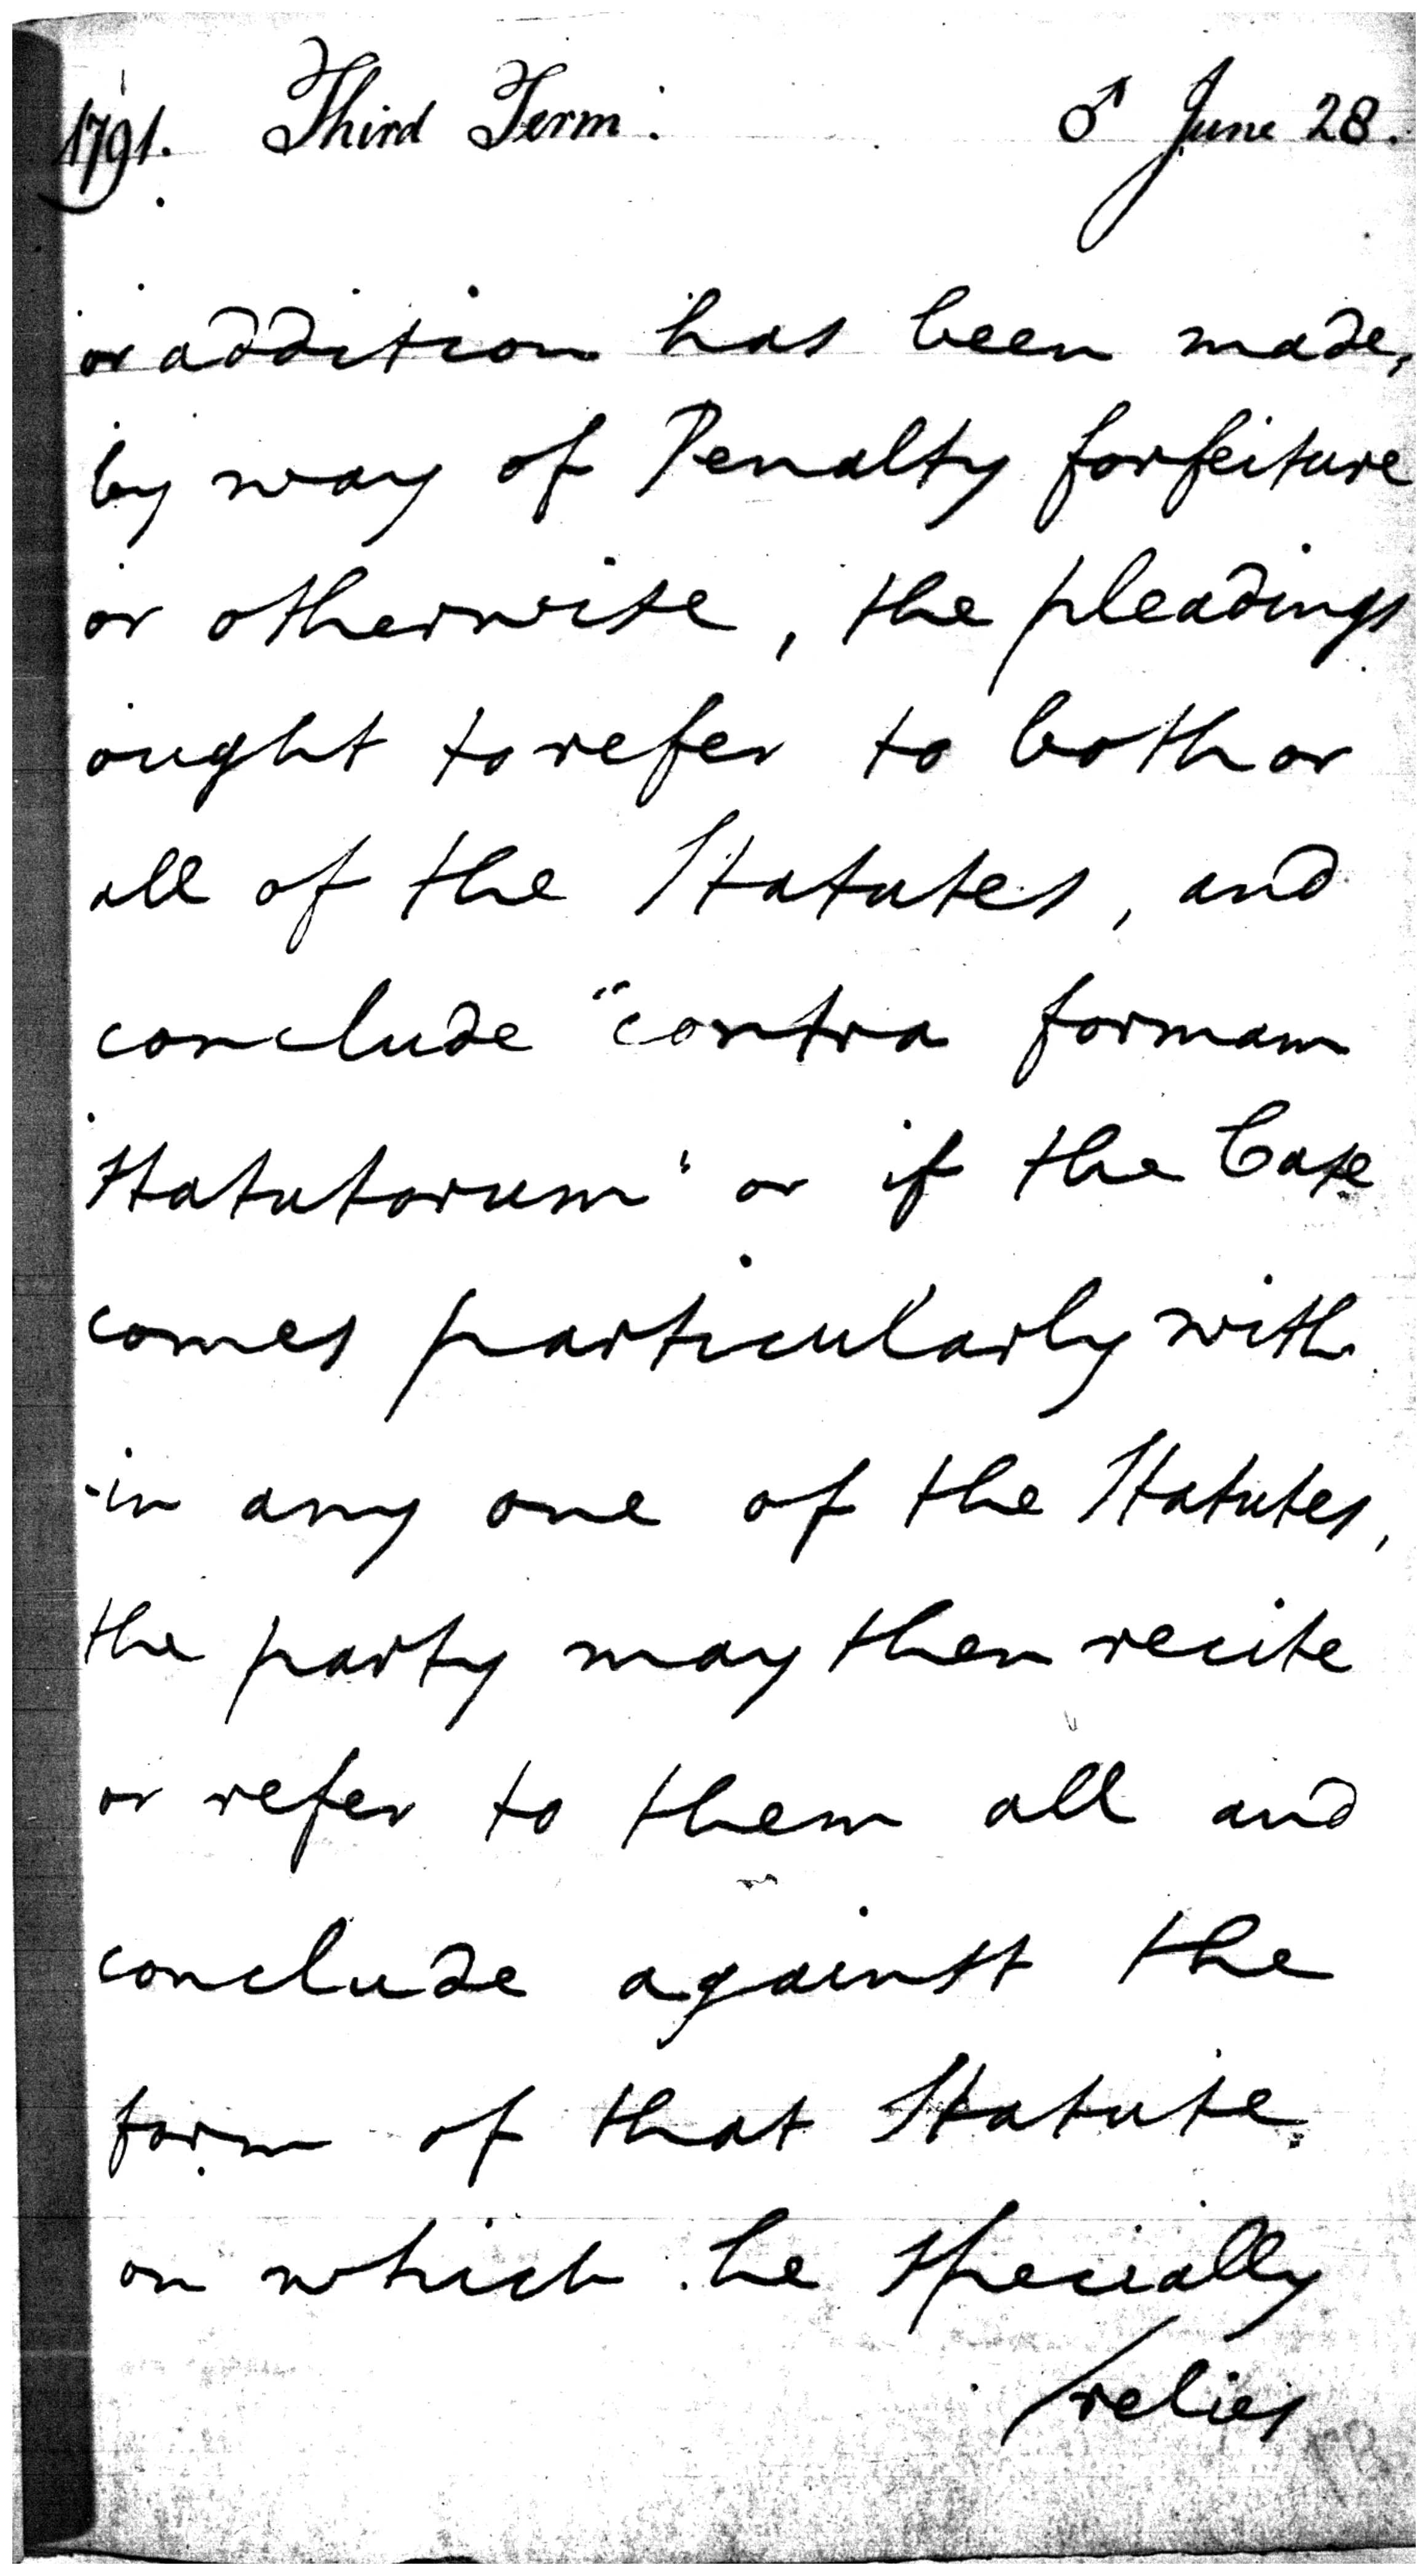 1791. Third Term. ♂ June 28.
or addition has been made,
by way of Penalty forfeiture
or otherwise, the pleadings
ought to refer to both or
all of the Statutes, and
conclude "contra formam
Statutorum" or if the Case
comes particularly with
-in any one of the Statutes,
the party may then recite
or refer to them all and
conclude against the
form of that Statute
on which he specially
/relies